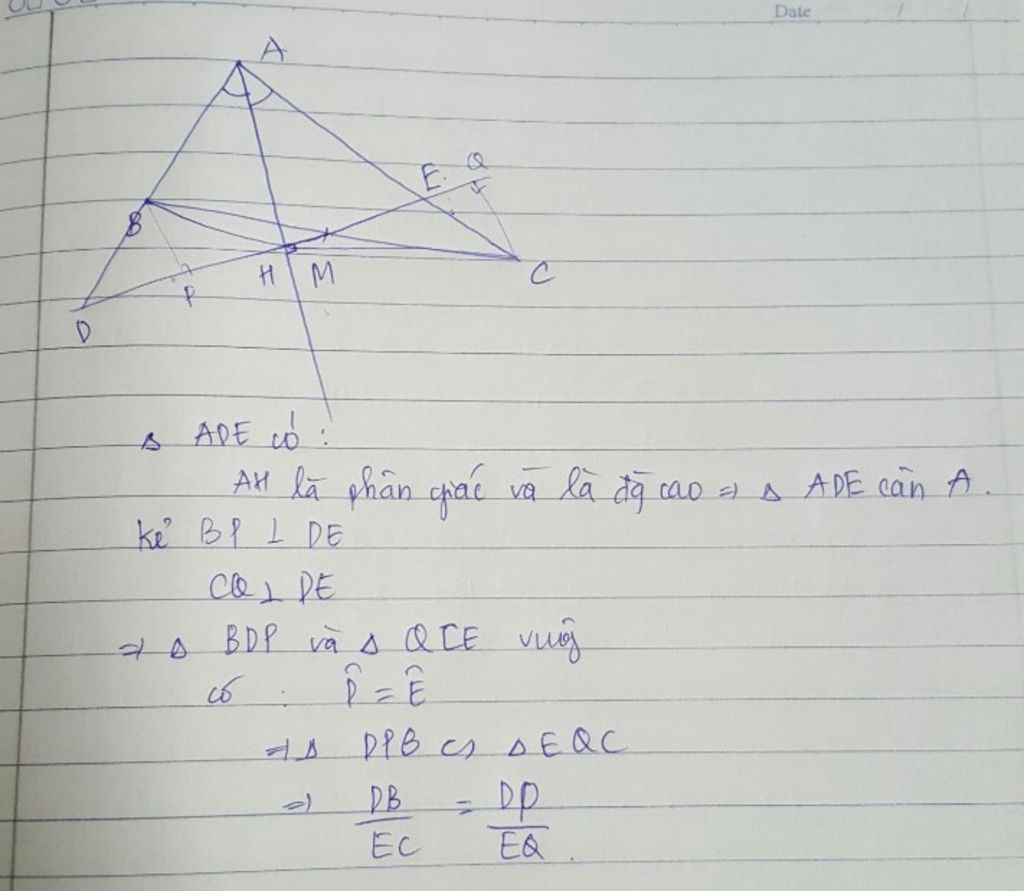 Date / /
A
E Q
B
H M
C
P
D
Δ ADE có :
AH là phân giác và là đg cao => Δ ADE cân A.
kẻ BP ⊥ DE
CQ ⊥ DE
=> Δ BDP và Δ QCE vuôg
có : D̂ = Ê
=> Δ DPB ∽ Δ EQC
=> DB/EC = DP/EQ.